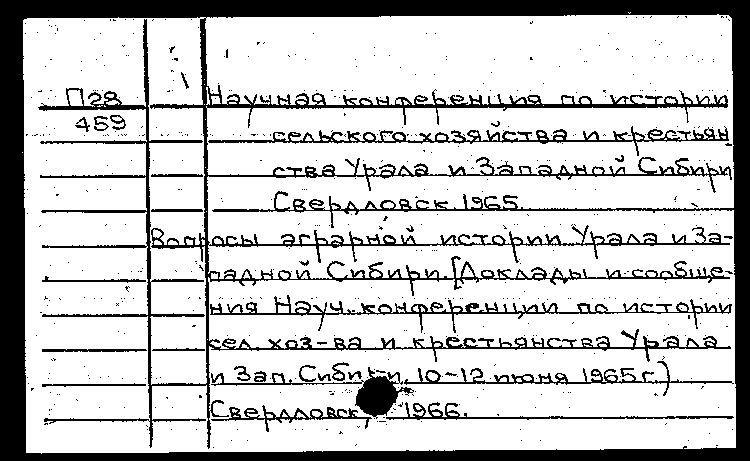 П28 Научная конференция по истории
459 сельского хозяйства и крестьян
ства Урала и Западной Сибири
Свердловск 1965.
Вопросы аграрной истории Урала и За-
падной Сибири. [Доклады и сообще-
ния Науч. конференции по истории
сел. хоз-ва и крестьянства Урала
и Зап. Сибири, 10-12 июня 1965г.)
Свердловск, 1966.